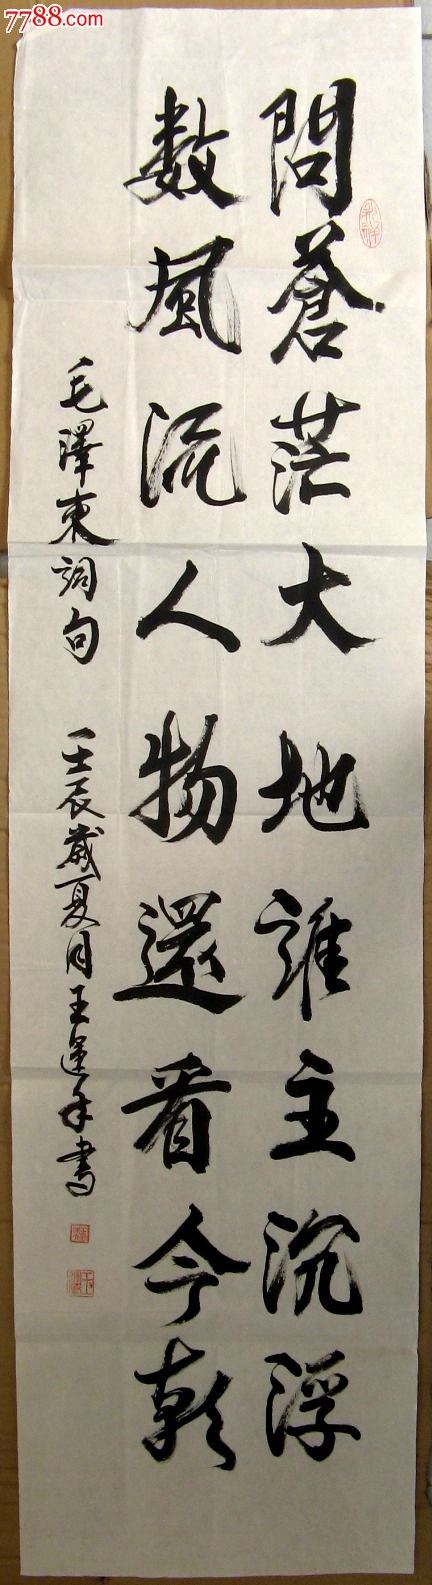 7788.com
問蒼茫大地誰主沉浮
数風流人物還看今朝
毛澤東詞句 壬辰歲夏月王運年書